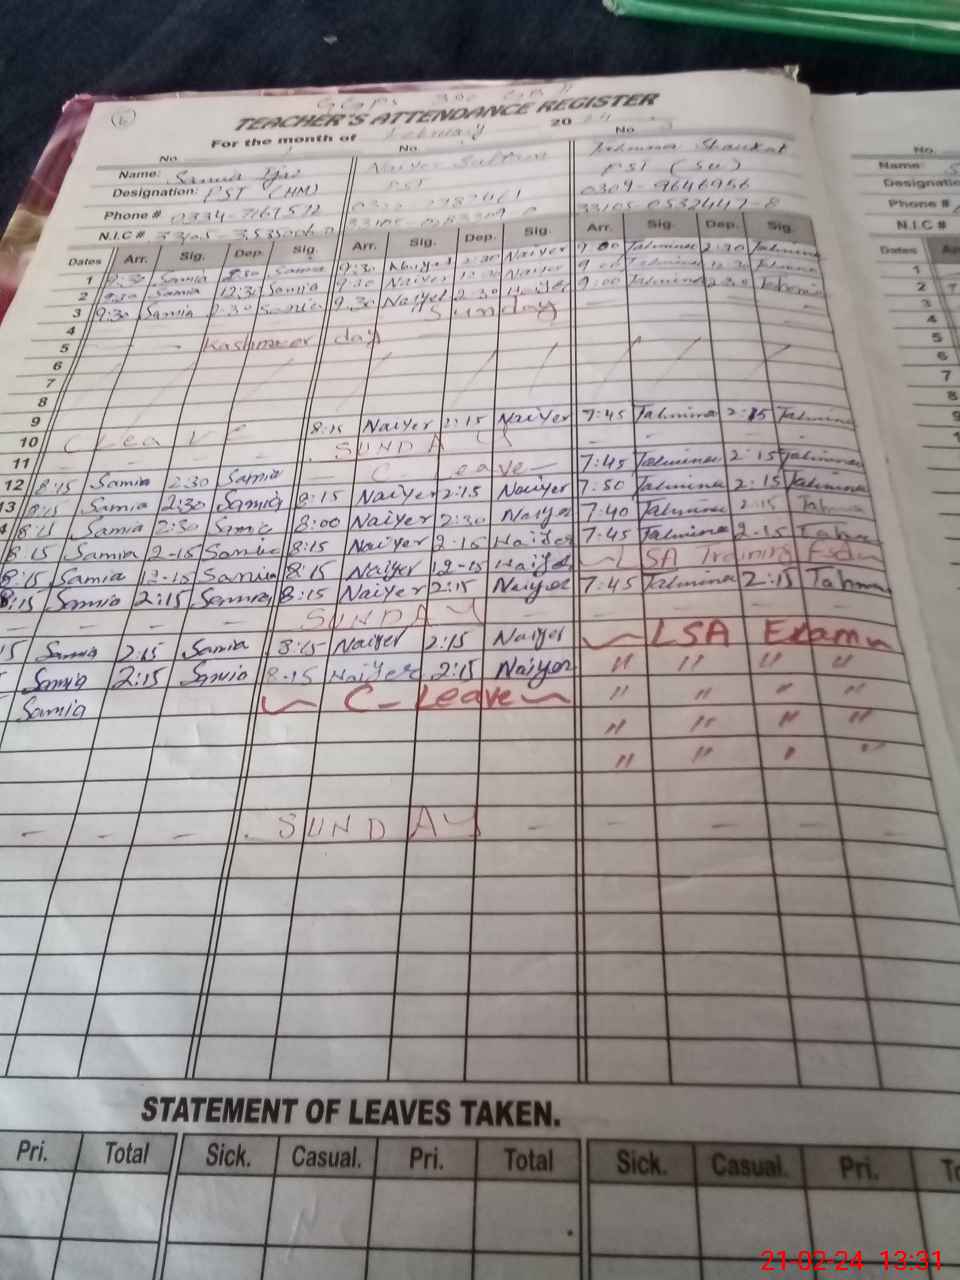 TEACHER'S ATTENDANCE REGISTER
For the month of February 20 24
No. No.
Name: Samia Naiyer Tahmina Shaukat
Designation: PST (HM) PST PST (SU)
Phone # 0334-7169512 0309-9646956
N.I.C # 33105-0532447-8
Dates Arr. Sig. Dep. Sig. Arr. Sig. Dep. Sig. Arr. Sig. Dep. Sig.
1 9:30 Samia 2:30 Samia 9:30 Naiyer 2:30 Naiyer 9:00 Tahmina 2:30 Tahmina
2 9:30 Samia 12:30 Samia 9:30 Naiyer 12:30 Naiyer 9:00 Tahmina 12:30 Tahmina
3 9:30 Samia 2:30 Samia 9:30 Naiyer 2:30 Naiyer 9:00 Tahmina 2:30 Tahmina
4 Sunday
5 Kashmeer day
6
7
8
9
10 C Leave 8:15 Naiyer 2:15 Naiyer 7:45 Tahmina 2:15 Tahmina
11 - - - SUNDAY - - -
12 8:15 Samia 2:30 Samia C Leave 7:45 Tahmina 2:15 Tahmina
13 8:15 Samia 2:30 Samia 8:15 Naiyer 2:15 Naiyer 7:50 Tahmina 2:15 Tahmina
4 8:15 Samia 2:30 Samia 8:00 Naiyer 2:30 Naiyer 7:40 Tahmina 2:15 Tahmina
8:15 Samia 2-15 Samia 8:15 Naiyer 2-15 Naiyer 7:45 Tahmina 2-15 Tahmina
8:15 Samia 12-15 Samia 8:15 Naiyer 12-15 Naiyer LSA Training
8:15 Samia 2:15 Samia 8:15 Naiyer 2:15 Naiyer 7:45 Tahmina 2:15 Tahmina
- - - SUNDAY - - - -
15 Samia 2:15 Samia 8:15 Naiyer 2:15 Naiyer LSA Exam
Samia 2:15 Samia 8:15 Naiyer 2:15 Naiyer " " " "
Samia C-Leave " " " "
" " " "
" " " "
- - - SUNDAY - - - -
STATEMENT OF LEAVES TAKEN.
Pri. Total Sick. Casual. Pri. Total Sick. Casual. Pri.
No.
Name:
Phone #
N.I.C #
Dates
1
2
3
4
5
6
7
8
9
21-02-24 13:31